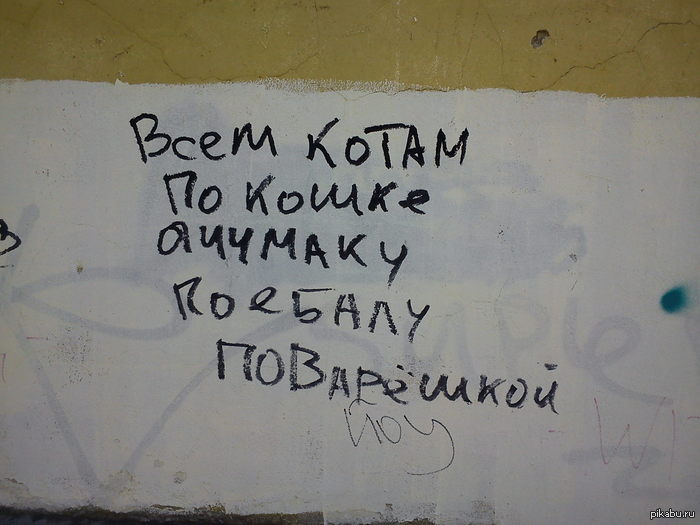 Всем котам
По кошке
Яиумаку
Поебалу
Поварёшкой
йоу
pikabu.ru